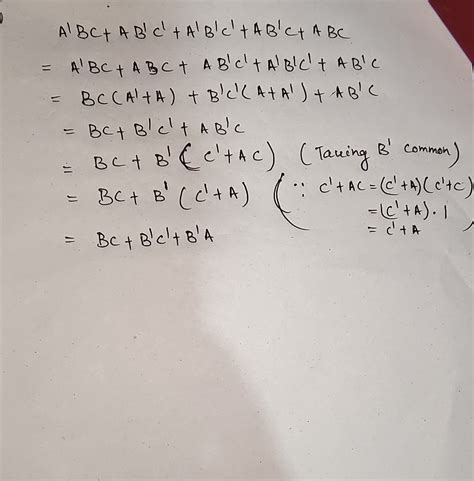 A'BC + AB'C' + A'B'C' + AB'C + ABC
= A'BC + ABC + AB'C' + A'B'C' + AB'C
= BC(A'+A) + B'C'(A+A') + AB'C
= BC + B'C' + AB'C
= BC + B'(C'+AC) (Taking B' common)
= BC + B'(C'+A) (∵ C'+AC = (C'+A)(C'+C)
= (C'+A)·1
= BC + B'C' + B'A
= C'+A